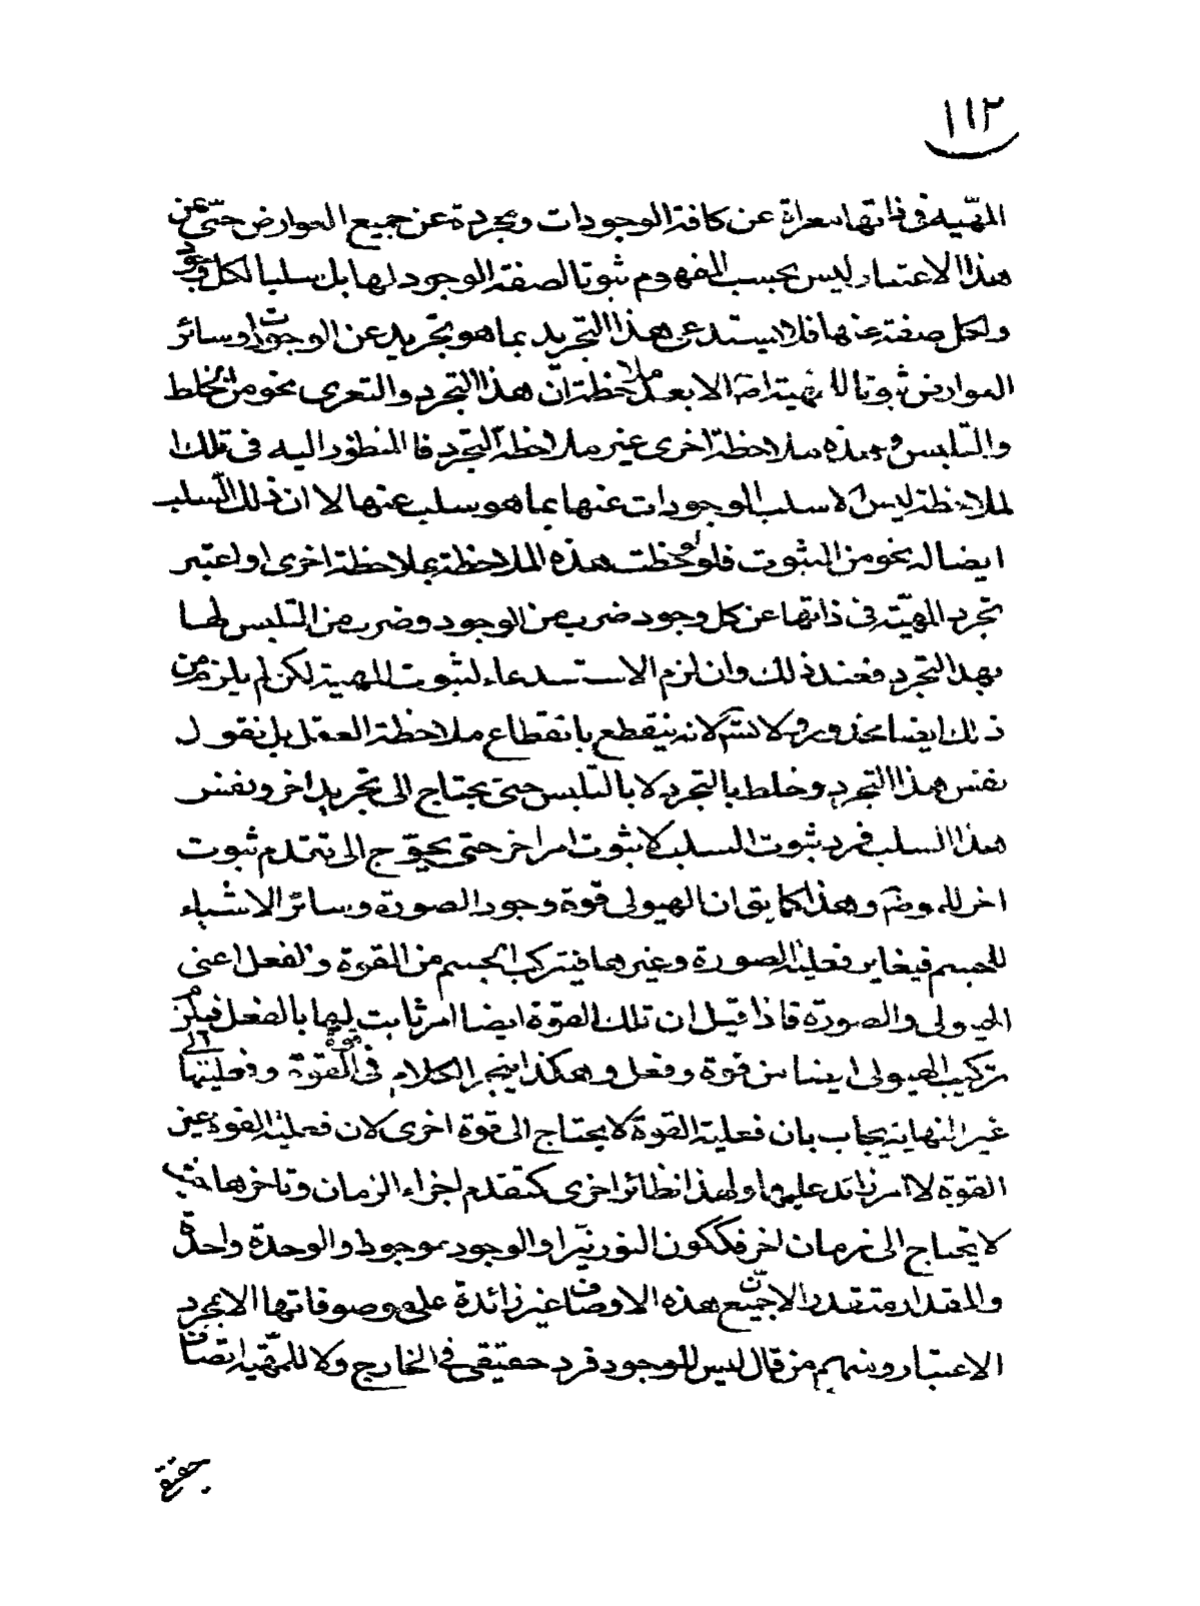 ١١٢
المهّيه فى ذاتها معراة عن كافة الوجودات ومجردة عن جميع العوارض حتّى عن
هذا الاعتبار ليس بحسب المفهوم ثبوتا لصفة الوجود لها بل سلبا لكل وجود
ولكل صفة عنها فلا يستدعى هذا التجريد بما هو تجريد عن الوجودات وسائر
العوارض ثبوتا للمهية اصلا الا بعد ملاحظة انّ هذا التجرد والتعرى نحو من الخلط
والتلبس وهذه ملاحظة اخرى غير ملاحظة التجرد فالمنظور اليه فى تلك ا
لملاحظة ليس الا سلب الوجودات عنها بما هو سلب عنها لا ان ذلك السلب
ايضا له نحو من الثبوت فلو لوحظت هذه الملاحظة بملاحظة اخرى او اعتبر
تجرد المهيّة فى ذاتها عن كل وجود ضرب من الوجود وضرب من التلبس لها
بهذا التجرد فعند ذلك وان لزم الاستدعاء لثبوت المهية لكن لم يلزم من
ذلك ايضا محذور ولا تسلسل لانه ينقطع بانقطاع ملاحظة العقل بل نقول
نفس هذا التجرد وخلط بالتجرد لا بالتلبس حتى يحتاج الى تجريد اخر ونفس
هذا السلب فرد ثبوت السلب لا ثبوت امر اخر حتى يحوّج الى تقدم ثبوت
اخر للموضوع وهذا كما يق ان الهيولى قوة وجود الصورة وسائر الاشياء
للجسم فيغاير فعلية الصورة وغيرها فيتركب الجسم من القوة والفعل اعنى
الهيولى والصورة فاذا قيل ان تلك القوة ايضا امر ثابت لها بالفعل فيلزم
تركيب الهيولى ايضا من قوة وفعل وهكذا ينجر الكلام فى قوة القوة وفعليتها الى
غير النهاية يجاب بان فعلية القوة لا يحتاج الى قوة اخرى لان فعلية القوة عين
القوة لا امر زائد عليها ولهذا نظائر اخرى كتقدم اجزاء الزمان وتاخرها حيث
لا يحتاج الى زمان اخر فككون النور نيّرا والوجود موجودا والوحدة واحدة
والمقدار متقدرا لا جميع هذه الاوصاف غير زائدة على موصوفاتها الا بمجرد
الاعتبار ومنهم من قال ليس للوجود فرد حقيقى فى الخارج ولا للمهّية اتصاف
حقيقة